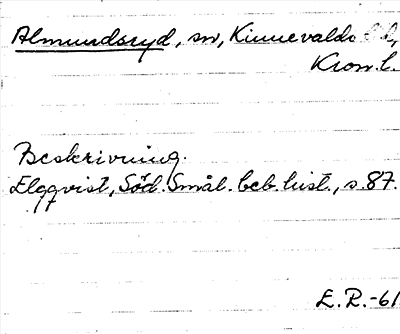 Almundsryd, sn, Kinnevalds hd,
Kron.l.
Beskrivning.
Elgqvist, Söd. Smål. beb. hist., s. 87.
E.R.-61